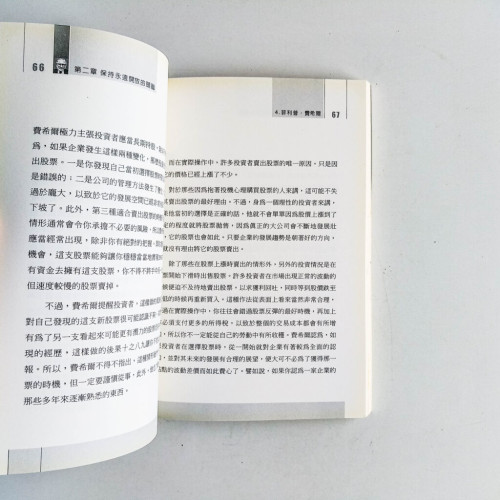 66
第二章 保持永遠開放的
費希爾極力主張投資者應當長期持
為，如果企業發生這樣兩種變化，
出股票。一是你發現自己當初選擇
是錯誤的；二是公司的管理方法發生了
過於龐大，以致於它的發展空間已經
下坡了。此外，第三種適合賣出股票的
情形通常會令你承擔不必要的風險，所
應當經常出現，除非你有絕對的把握，
機會，這支股票能夠讓你穩穩當當地
有資金去擁有這支股票，你不得不將手
但速度較慢的股票賣掉。
不過，費希爾提醒投資者，這種做
對自己發現的這支新股票很可能認識不
有為了另一支看起來可能更有潛力的
現的經歷。這樣做的後果十之八九讓
報。所以，費希爾不得不指出，這種
票的時機，但一定要謹慎從事，此外，
那些多年來逐漸熟悉的東西，
4.菲利普．費希爾
67
而在實際操作中，許多投資者賣出股票的唯一原因，只是因
它的價格已經上漲了不少。
對於那些因為抱著投機心理購買股票的人來講，這可能不失
賣出股票的最好理由，不過，身為一個理性的投資者來講，
他當初的選擇是正確的話，他就不會單單因為股票上漲到了
定的程度就將股票拋售，因為真正的大公司會不斷地發展壯
它的股票也會如此。只要企業的發展趨勢是朝著好的方向，
沒有理由將它的股票賣出。
除了那些在股票上漲時賣出的情形外，另外的情況就是在
開始下滑時出售股票。許多投資者在市場出現正常的波動的
迫不及待地賣出股票，以求獲利回吐，同時等到股價大跌至
低的時候再重新買入，這種作法從表面上看來當然非常合理，
在實際操作中，你往往會錯過股票反彈的最好時機，再加上
必須支付更多的所得稅，以致於整個的交易成本都會有所增
所以你不一定能從自己的勞動中有所收穫。費希爾認為，如
資者在選擇股票時，從一開始就對企業有著較為全面的認
並對其未來的發展有合理的展望，便大可不必為了獲得那一
點的波動差價而如此費心了。譬如說，如果你認為一家企業的